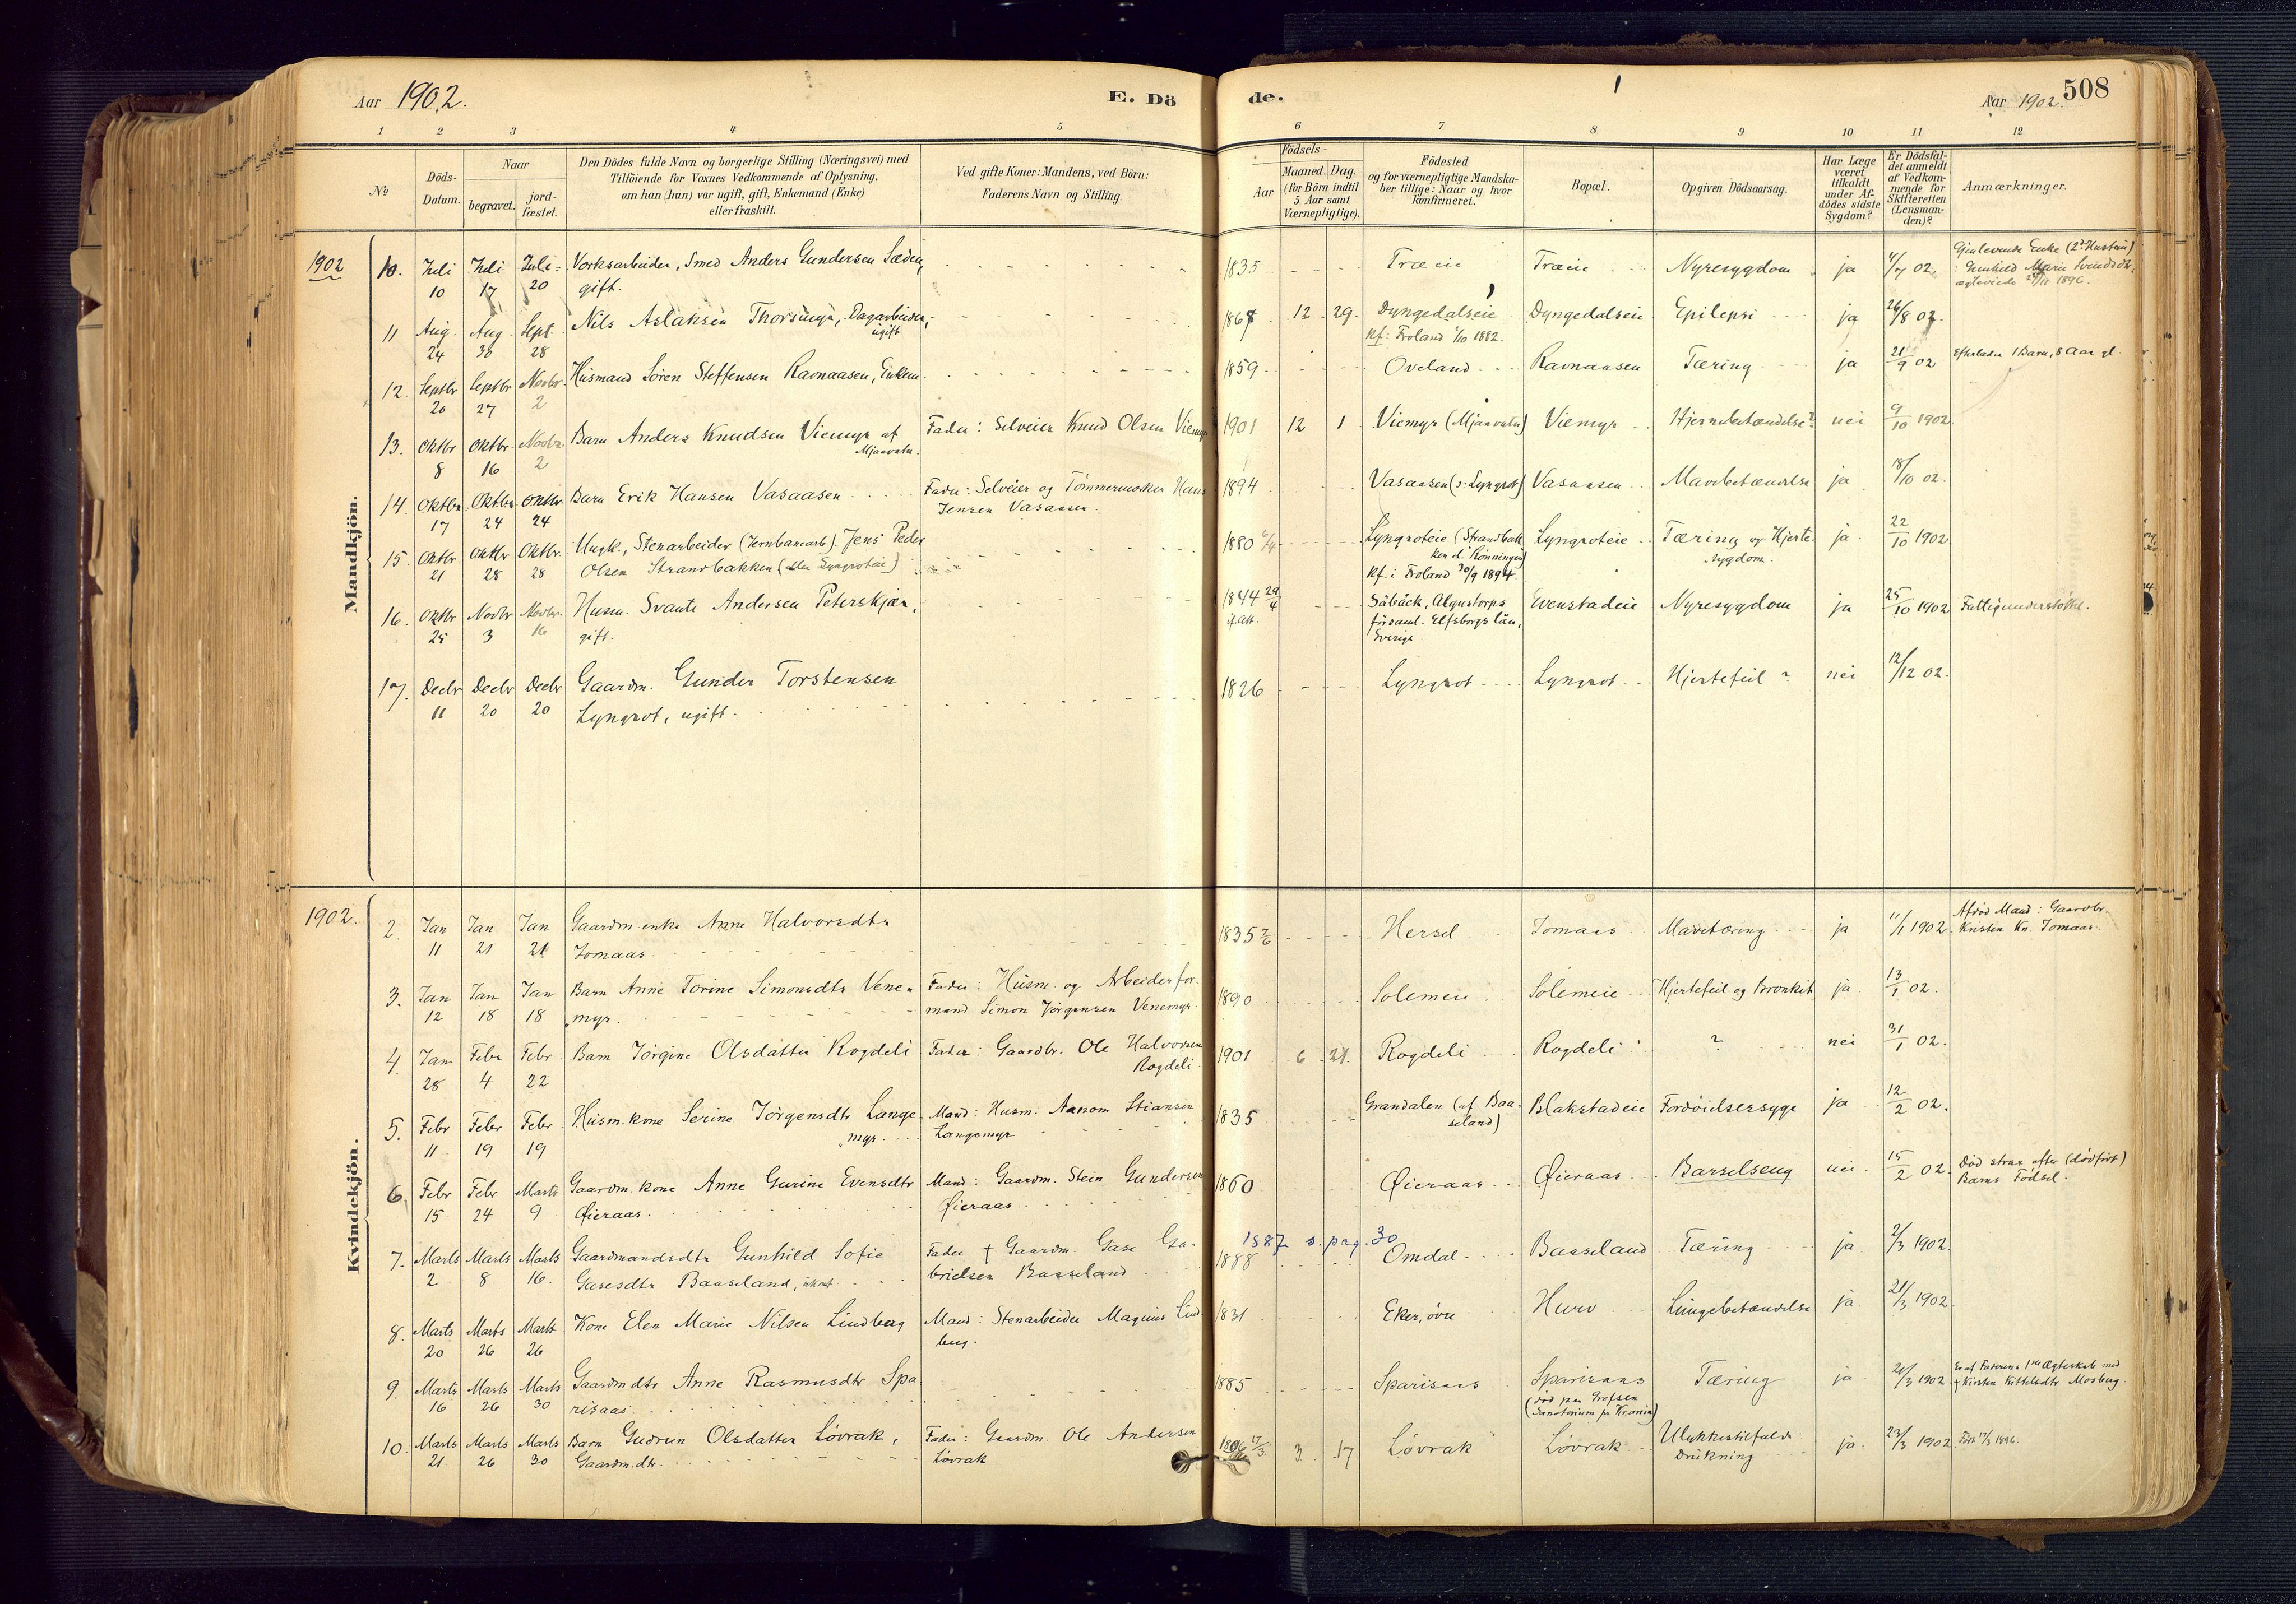 Aar 1902.
E. Dö
de.
Aar 1902.
508
1 2 3 4 5 6 7 8 9 10 11 12
№
Döds-
Datum.
Naar
begravet.
jord-
fæstet.
Den Dödes fulde Navn og borgerlige Stilling (Næringsvei) med
Tilföiende for Voxnes Vedkommende af Oplysning,
om han (hun) var ugift, gift, Enkemand (Enke)
eller fraskilt.
Ved gifte Koner: Mandens, ved Börn:
Faderens Navn og Stilling.
Födsels-
Aar
Maaned. Dag.
(for Börn indtil
5 Aar samt
Værnepligtige).
Födested
og for værnepligtige Mandska-
ber tillige: Naar og hvor
konfirmeret.
Bopæl.
Opgiven Dödsaarsag.
Har Læge
været
tilkaldt
under Af-
dödes sidste
Sygdom?
Er Dödsfal-
det anmeldt
af Vedkom-
mende for
Skifteretten
(Lensman-
den)?
Anmærkninger.
Mandkjön.
1902
10. Juli 10 Juli 17 Juli 20 Verksarbeider, Smed Anders Gundersen
gift. 1835 Træeie Træeie Nyresygdom ja 11/7 02. Gjenlevende Enke (2den Hustru)
: Gunhild Marie
ægteviede 1896.
11 Aug. 24 Aug 30 Sept 28 Nils Aslaksen Thorsmyr, Dagarbeider,
ugift 1867 12 29 Dyngedalseie Dyngedalseie Epilepsi ja 26/8 02.
Kf: Froland 1/10 1882.
12. Septbr 20 Septbr 27 Novbr 2 Husmand Sören Steffensen Ravnaasen, Enkem. 1859 Oveland Ravnaasen Tæring ja 21/9 02 Efterlader 1 Barn, 8 Aar gl.
13. Oktbr 8 Oktbr 16 Novbr. 2 Barn Anders Knudsen Viemyr af
Mjaavatn. Fader: Selveier Knud Olsen Viemyr 1901 12 1 Viemyr (Mjaavatn) Viemyr Hjernebetændelse? nei 9/10 1902.
14. Oktbr 17 Oktbr 24 Oktbr 24 Barn Erik Hansen Vasaasen Fader: Selveier og Tömmermerker Hans
Jensen Vasaasen. 1894 Vasaasen (: Lyngrot) Vasaasen Mavebetændelse ja 18/10 02.
15. Oktbr 21 Oktbr 28 Oktbr. 28 Ungk., Stenarbeider (Jernbanearb). Jens Peder
Olsen Strandbakken (eller Lyngroteie) 1880 Lyngroteie (Strandbak
ken el. Rönningen) Lyngroteie Tæring og Hjerte-
sygdom. ja. 22/10 1902
Kf. i Froland 30/9 1894.
16. Oktbr 25 Novbr 3 Novbr. 16 Husm. Svante Andersen Peterskjær,
gift. 1844 29/4 Säbäck, Algustorps
församl. Elfsborgs län,
Sverige. Evenstadeie Nyresygdom ja 25/10 1902 Fattigunderstöttet.
17. Decbr 11 Decbr 20 Decbr 20 Gaardm. Gunder Torstensen
Lyngrot, ugift. 1826 Lyngrot Lyngrot Hjertefeil ? nei 12/12 02.
Kvindekjön.
1902.
2. Jan 11 Jan 21 Jan 21 Gaardm.enke Anne Halvorsdtr
Jomaas. 1835 7/6 Hersel Jomaas Mavetæring ja 11/1 1902 Afdöd Mand: Gaardbr.
Kristen Kn. Jomaas.
3. Jan 12 Jan 18 Jan 18 Barn Anne Torine Simonsdtr Vene-
myr. Fader: Husm. og Arbeiderfor-
mand Simon Jörgensen Venemyr 1890 Solemeie Solemeie Hjertefeil og Bronkit ja 13/1 02.
4. Jan 28 Febr 4 Febr 22 Barn Jörgine Olsdatter Rogdeli Fader: Gaardbr. Ole Halvorsen
Rogdeli 1901 6 21. Rogdeli Rogdeli ? nei 31/1 02.
5. Febr 11 Febr 19 Febr 19 Husm.kone Serine Jörgensdtr Lange-
myr. Mand: Husm. Aanon Stiansen
Langemyr 1835 Grandalen (af Baa-
seland) Blakstadeie Fordöielsessyge ja 12/2 02.
6. Febr 15 Febr 24 Marts 9 Gaardm.kone Anne Gurine Evensdtr
Øieraas. Mand: Gaardm. Stein Gundersen
Øieraas 1860 Øieraas Øieraas Barselseng nei. 15/2 02. Död strax efter (dödfödt)
Barns Födsel.
7. Marts 2 Marts 8 Marts 16. Gaardmandsdtr Gunhild Sofie
Gasesdtr Baaseland, Fader † Gaardm. Gase Ga-
brielsen Baaseland 1888 1887 s. pag. 30 Omdal Baaseland Tæring ja. 2/3 1902.
8. Marts 20 Marts 26 Marts 26 Kone Elen Marie Nilsen Lindberg Mand: Stenarbeider Magnus Lind
berg. 1831 Eker, övre Hurv Lungebetændelse ja 21/3 1902.
9. Marts 16 Marts 26 Marts 30 Gaardmdtr Anne Rasmusdtr Spa-
risaas. 1885 Sparisaas Sparisaas
(död paa Grefsen
Sanatorium pr Kr.ania) Tæring ja 21/3 1902 Er af Faderens 1ste Ægteskab med
† Kirsten Kittelsdtr Mosberg.
10. Marts 21 Marts 26 Marts 30 Barn Gudrun Olsdatter Lövrak,
Gaardm.dtr. Fader: Gaardm. Ole Andersen
Lövrak 1896 17/3 3 17. Lövrak Lövrak Ulykkestilfælde
Drukning ja. 23/3 1902. Födt 17/3 1896.